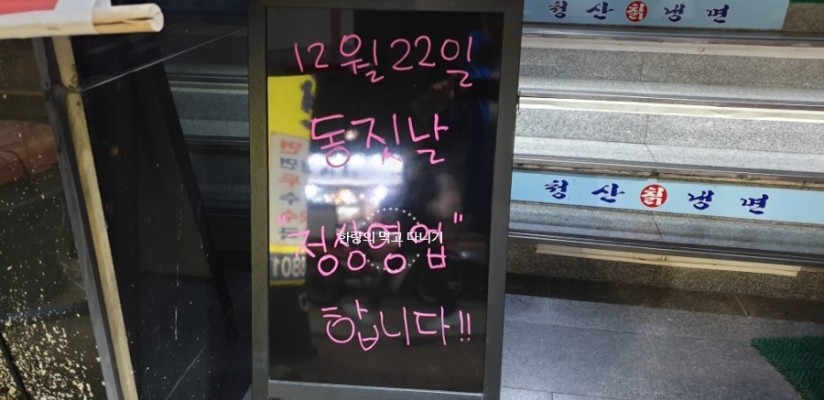 청산칡냉면
12월 22일
동짓날
"정상영업"
합니다!!
한량의 먹고 다니기
청산칡냉면